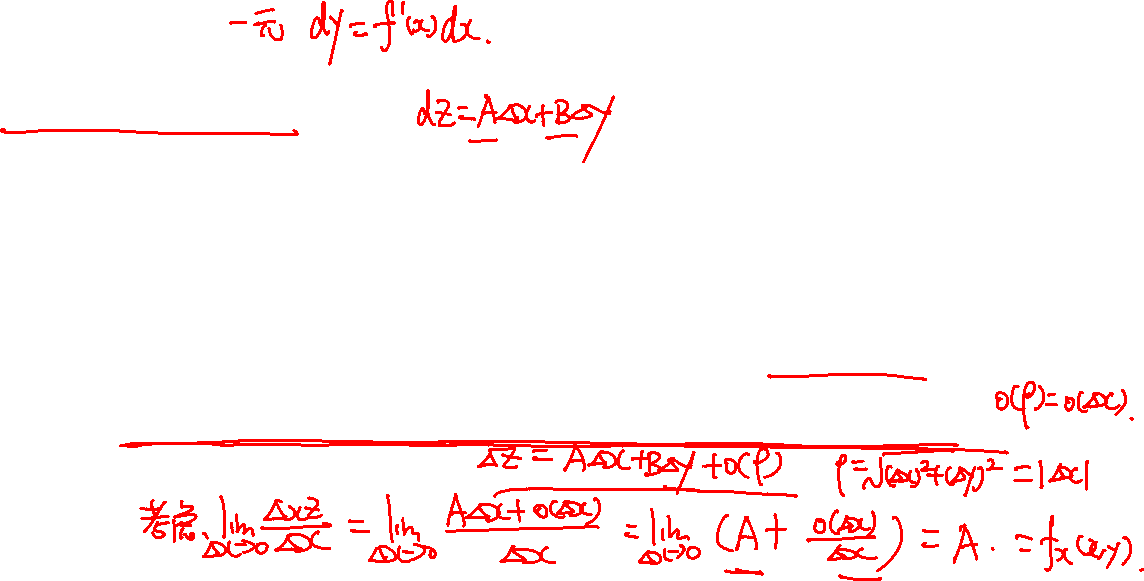 一元 dy=f'(x)dx.
dz=AΔx+BΔy
o(ρ)=o(Δx).
Δz=AΔx+BΔy+o(ρ) ρ=√((Δx)²+(Δy)²)=|Δx|
考虑 lim_{Δx→0} Δxz/Δx = lim_{Δx→0} (AΔx+o(Δx))/Δx = lim_{Δx→0} (A+o(Δx)/Δx) = A. =f_x(x,y).